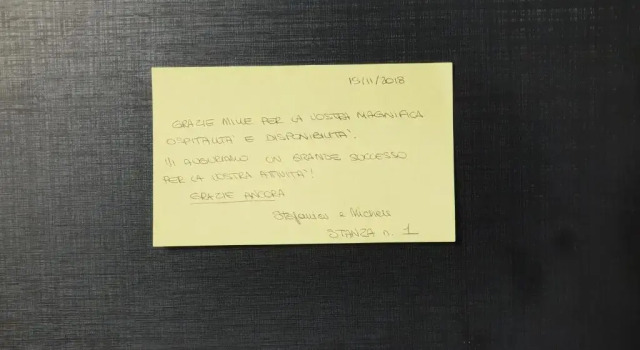 15/11/2018
GRAZIE MILLE PER LA VOSTRA MAGNIFICA
OSPITALITA' E DISPONIBILITA'.
VI AUGURIAMO UN GRANDE SUCCESSO
PER LA VOSTRA ATTIVITA'!
GRAZIE ANCORA
e Michele
STANZA n. 1